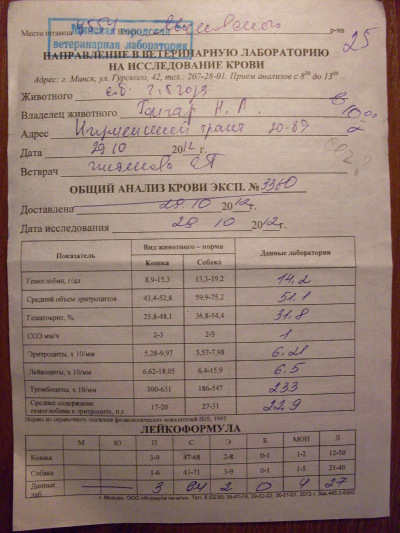 Место штампа р-на
Минская городская
ветеринарная лаборатория
25
НАПРАВЛЕНИЕ В ВЕТЕРИНАРНУЮ ЛАБОРАТОРИЮ
НА ИССЛЕДОВАНИЕ КРОВИ
Адрес: г. Минск, ул. Гурского, 42, тел.: 207-28-01. Прием анализов с 8⁰⁰ до 13⁰⁰
Животного
Владелец животного Гончар Н. П.
Адрес Игуменский тракт
Дата 29 10 2012г.
Ветврач
ОБЩИЙ АНАЛИЗ КРОВИ ЭКСП. № 3360
Доставлена 28.10 2012г.
Дата исследования 28 10 2012г.
Показатель Вид животного – норма Данные лаборатории
Кошка Собака
Гемоглобин, г/дл 8,9-15,3 13,3-19,2 14,2
Средний объем эритроцитов 43,4-52,8 59,9-75,2 51.1
Гематокрит, % 25,8-48,1 36,8-54,4 31.8
СОЭ мм/ч 2-3 2-3 1
Эритроциты, х 10/мм 5,28-9,97 5,57-7,98 6.21
Лейкоциты, х 10/мм 6,62-18,05 6,4-15,9 6.5
Тромбоциты, х 10/мм 300-631 186-547 233
Среднее содержание гемоглобина в эритроците, п.г. 17-20 27-31 22,9
Нормы из справочного значения физиологических показателей ISIS, 1995
ЛЕЙКОФОРМУЛА
М Ю П С Э Б МОН Л
Кошка 3-9 47-68 2-8 0-1 1-2 12-50
Собака 1-6 43-71 3-9 0-1 1-5 21-40
Данные лаб. 3 64 2 0 4 27
г. Мозырь, ООО «Формула печати»